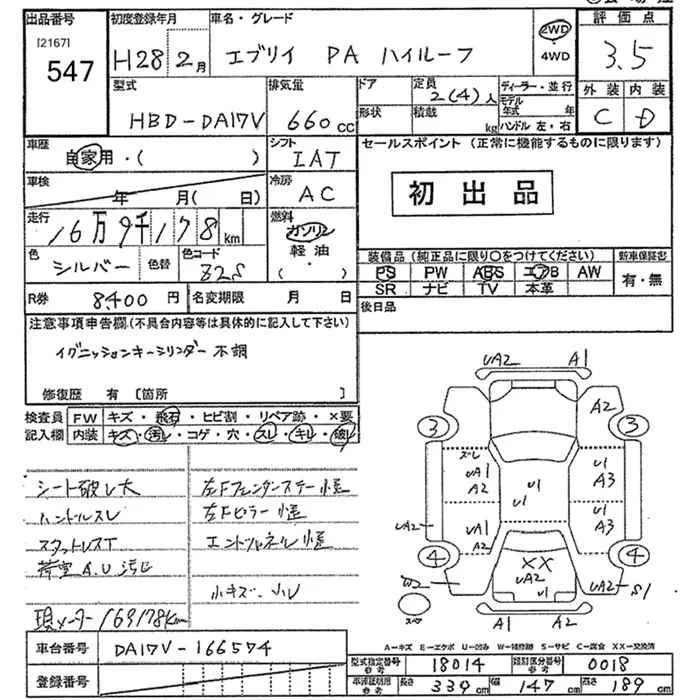 出品番号 [2167] 547
初度登録年月 H28 2月
車名・グレード エブリイ PA ハイルーフ
2WD ・ 4WD
評価点 3.5
外装 内装
C D
型式 HBD-DA17V
排気量 660 cc
ドア
形状
定員 2(4)人
積載 kg
ディーラー・並行
モデル年式 年
ハンドル 左・右
車歴 自家用・( )
シフト IAT
セールスポイント (正常に機能するものに限ります)
初出品
車検 年 月( 日)
冷房 AC
走行 16万9千178km
燃料 ガソリン・軽油・( )
色 シルバー 色替
色コード Z2S
装備品(純正品に限り〇をつけてください)
新車保証書
PS PW ABS エアB AW
SR ナビ TV 本革
有・無
R券 8,400 円
名変期限 月 日
後日品
注意事項申告欄(不具合内容等は具体的に記入して下さい)
イグニッションキーシリンダー不調
修復歴 有 [箇所 ]
検査員記入欄
FW キズ・飛石・ヒビ割・リペア跡・×要
内装 キズ・汚レ・コゲ・穴・スレ・キレ・破レ
シート破レ大
ハンドルスレ
荷室 A.U 汚レ
左Fフェンダーステー
左Fピラー
小キズ・小凹
現メーター 169178km
UA2 A1
A2
3 3
UA1 A2 U1 A3
U1 U1
UA2 UA1 A2 U1 A3
4 4
XX UA2
UA2 S1
スペア
A1 A2
A-キズ E-エクボ U-凹み W-補修跡 S-サビ C-腐食 XX-交換済
車台番号 DA17V-166574
登録番号
型式指定番号 参考 18014
類別区分番号 参考 0018
車検証明用 参考 長さ 339cm 幅 147cm 高さ 189cm